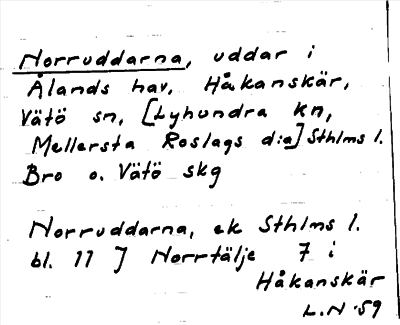 Norruddarna, uddar i
Ålands hav, Håkanskär,
Vätö sn, [Lyhundra kn,
Mellersta Roslags d:a] Sthlms l.
Bro o. Vätö skg
Norruddarna, ek Sthlms l.
bl. 11 J Norrtälje 7 i
Håkanskär
L.N. 59